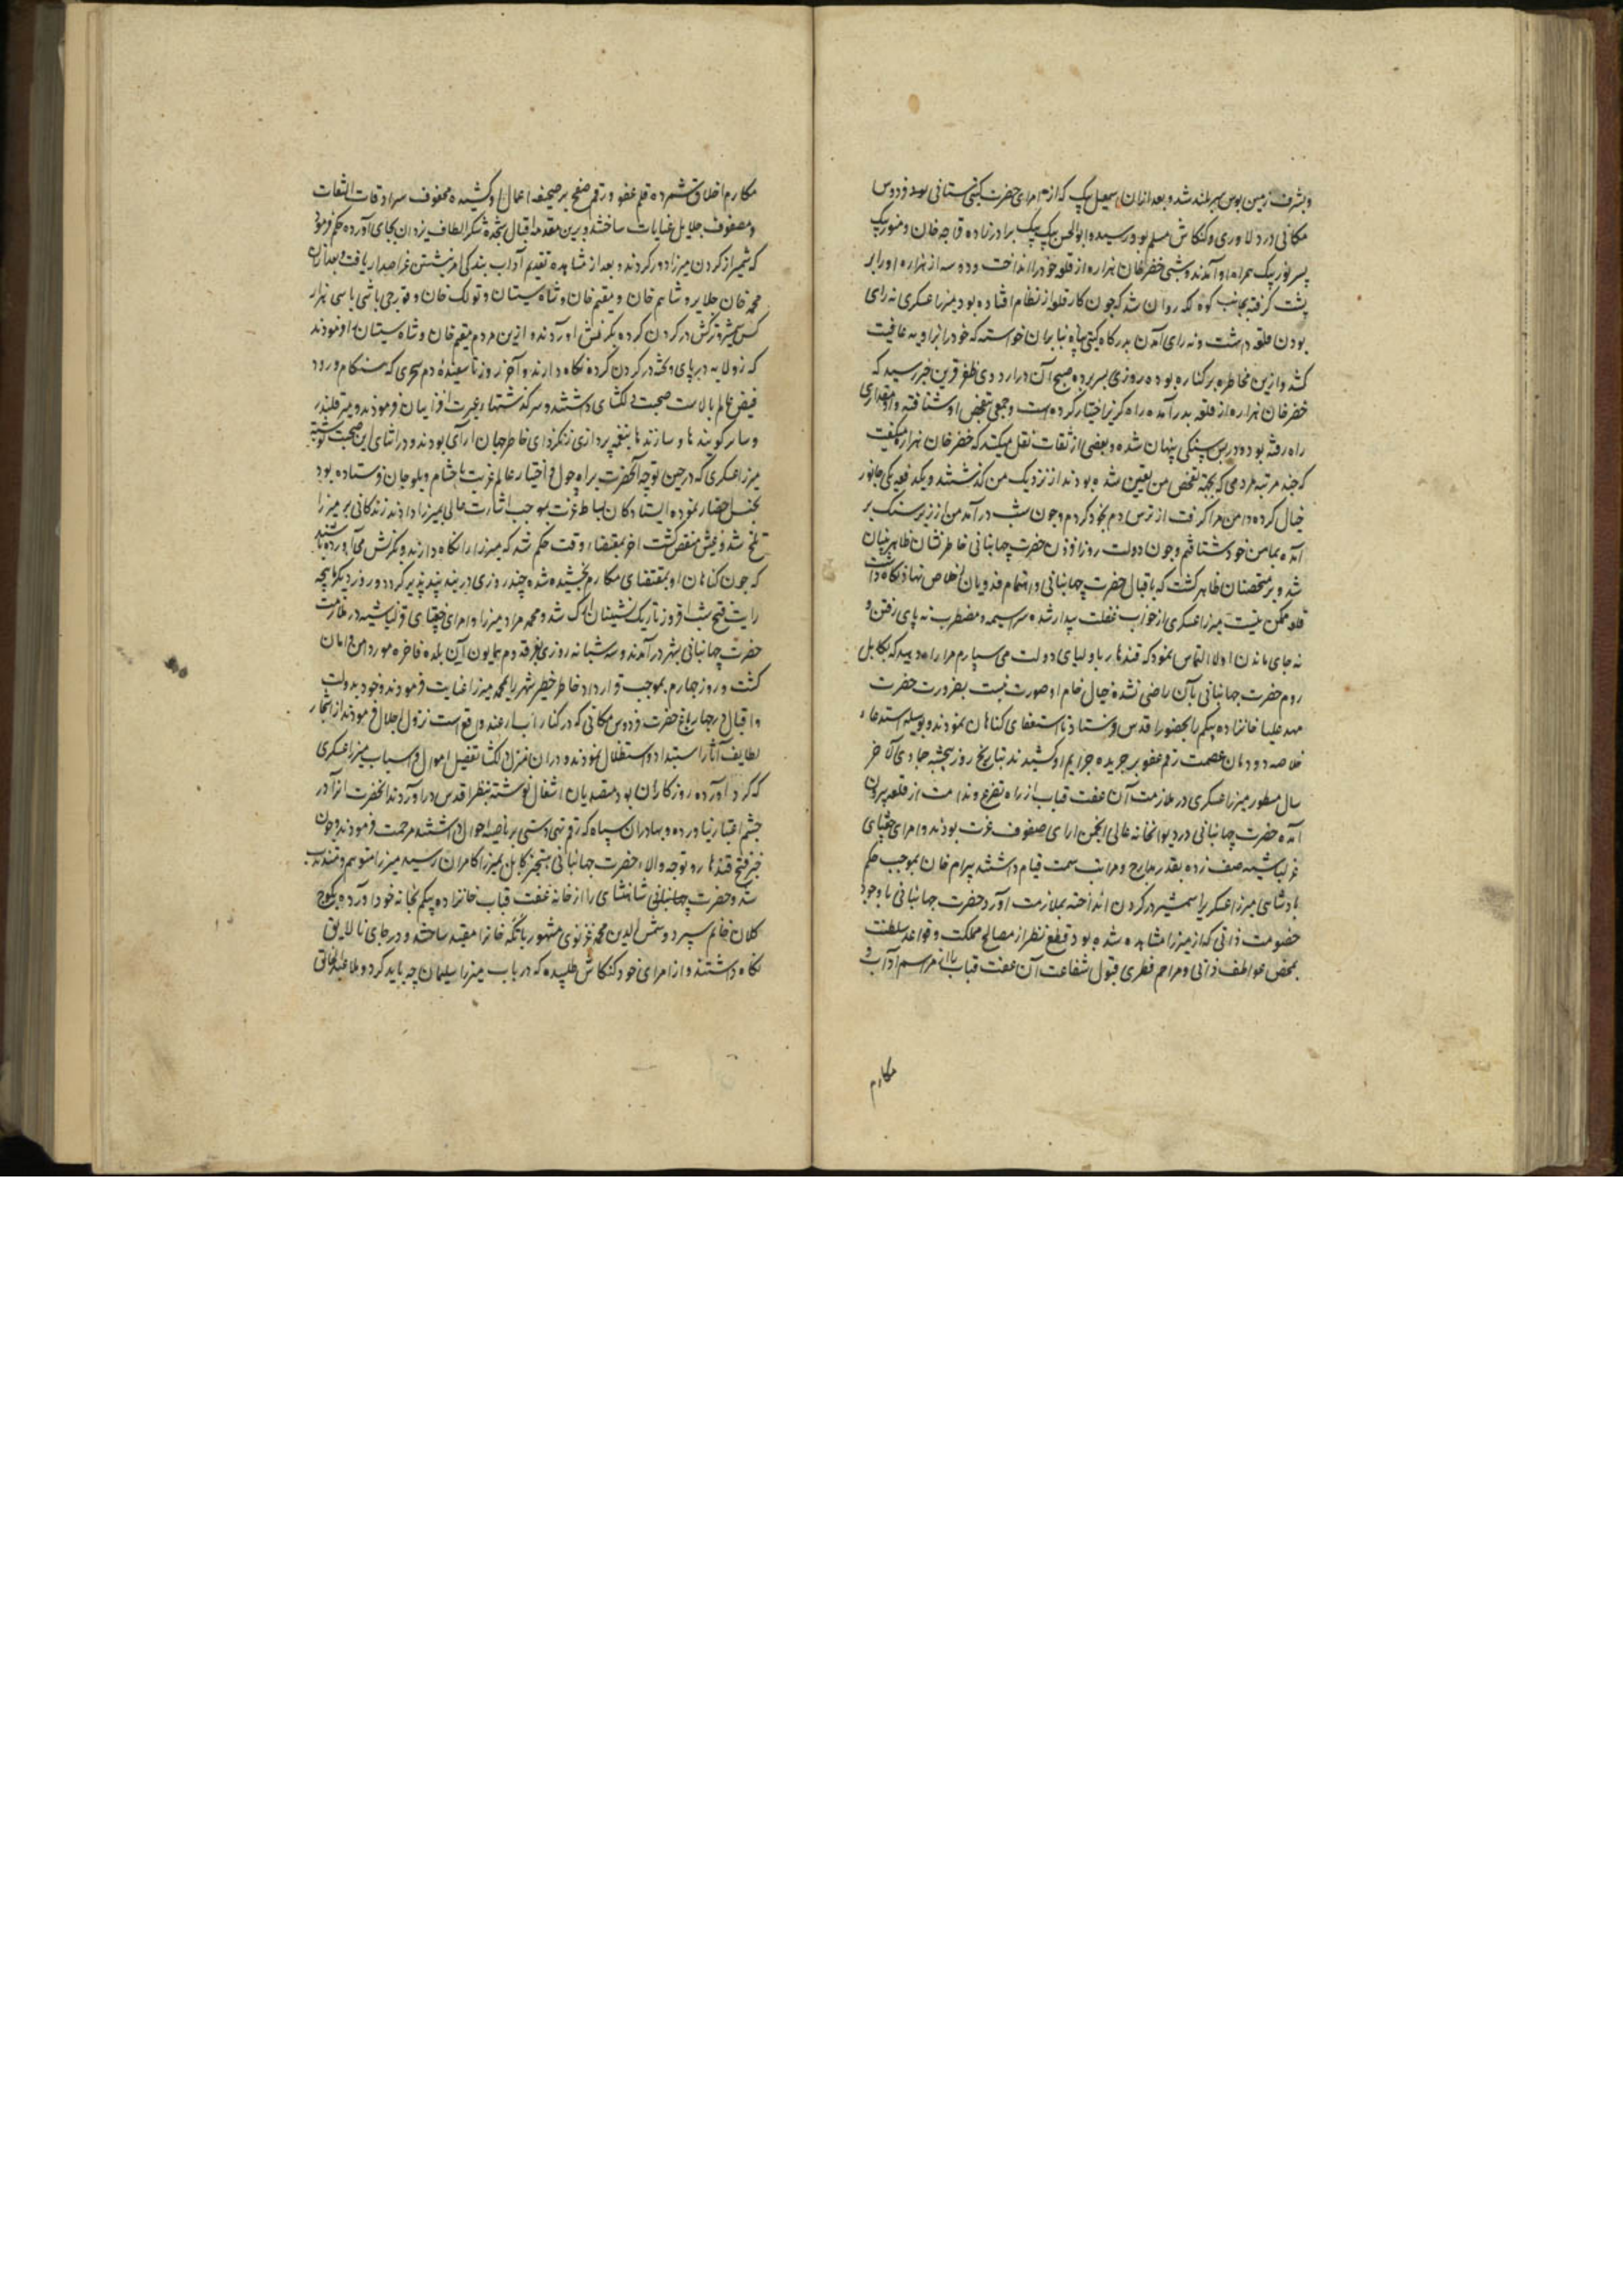 وبشرف زمین بوس سربلند شد و بعد ازان اسمعیل بیک که از امرای حضرت کیتی ستانی فردوس
مکانی در دلاوری و کنکاش مسلم بود رسید و ابوالحسن بیک برادرزاده قراجه خان و منور بیک
پسر نور بیک همراه او آمدند و شبی خضر خان هزاره از قلعه خود را انداخت و دو سه از هزاره او را بر
پشت کرفته بجانب کوه لکه روان شد که چون کار قلعه از نظام افتاده بود میرزا عسکری نه رای
بودن قلعه داشت و نه رای آمدن بدرکاه کیتی پناه بنابران خواسته که خود را بزاویه عافیت
کشد و ازین مخاطره بر کناره بوده روزی بسر برد صبح آن در اردوی ظفر قرین خبر رسید که
خضر خان هزاره از قلعه بدر آمده راه کریز اختیار کرده است و جمعی بتفحص او شتافته و او مقداری
راه رفته بود و در پس سنکی پنهان شده و بعضی از ثقات نقل میکنند که خضر خان هزاره میکفت
که چند مرتبه مردمی که بجهة تفحص من تعیین شده بودند از نزدیک من کذشتند و یکدفعه یکی جانور
خیال کرده دامن مرا کرفت از ترس دم بخود کردم و چون شب در آمد من از زیر سنک بر
آمده بمامن خود شتافتم و چون دولت روز افزون حضرت جهانبانی خاطر نشان ظاهربینان
شد و بر متحصنان ظاهر کشت که باقبال حضرت جهانبانی و اهتمام فدویان اخلاص نهاد نکاه داشت
قلعه ممکن نیست میرزا عسکری از خواب غفلت بیدار شده سراسیمه و مضطرب نه پای رفتن و
نه جای ماندن اولا التماس نمود که قندهار باولیای دولت می سپارم مرا راه دهید که بکابل
روم حضرت جهانبانی بآن راضی نشده خیال خام او صورت نبست بضرورت حضرت
مهد علیا خانزاده بیکم را بحضور اقدس فرستاد تا استعفای کناهان نمودند و بوسیله استدعاء
خلاصه دودمان عصمت رقم عفو بر جریده جرایم او کشیدند بتاریخ روز پنجشنبه جمادی الآخر
سال مسطور میرزا عسکری در ملازمت آن عفت قباب از راه تضرع و ندامت از قلعه بیرون
آمده حضرت جهانبانی در دیوانخانه عالی انجمن ارای صفوف عزت بودند و امرای جغتای
و قزلباشیه صف زده بقدر مدارج و مراتب سمت قیام داشتند بیرام خان بموجب حکم
پادشاهی میرزا عسکری را شمشیر در کردن انداخته بملازمت آورد حضرت جهانبانی با وجود
خصومت ذاتی که از میرزا مشاهده شده بود قطع نظر از مصالح مملکت و قواعد سلطنت
بمحض عواطف ذاتی و مراحم فطری قبول شفاعت آن عفت قباب با مراسم آداب و
مکارم
مکارم اخلاق شمرده قلم عفو و رقم صفح بر صحیفه اعمال او کشیده محفوف سرادقات التفات
و مصفوف جلایل عنایات ساختند و برین مقدمه اقبال سجده شکر الطاف یزدان بجای آورده حکم فرمود
که شمشیر از کردن میرزا دور کردند و بعد از مشاهده تقدیم آداب بندکی امر نشستن عز اصدار یافت بعد ازان
محمد خان جلایر و شاهم خان و مقیم خان و شاه سیستان و تولک خان و قورچی باشی با سی هزار
کس شمشیر و ترکش در کردن کرده بکرنش آوردند و ازین مردم مقیم خان و شاه سیستان امر فرمودند
که زولانه در پای و تخته در کردن کرده نکاه دارند و آخر روز تا سفیده دم سحری که هنکام ورود
فیض عالم بالاست صحبت دلکشای داشتند و سرکذشتهای عبرت افزا بیان فرمودند و میر قلندر
و سایر کویندها و سازندها بنغمه پردازی زنکزدای خاطر جهان آرای بودند و در اثنای این صحبت نوشته
میرزا عسکری که در حین توجه آنحضرت براه چول و اختیار عالم غربت باحشام و بلوچان فرستاده بود
بجنسه احضار نموده ایستادکان بساط عزت بموجب اشارت عالی بمیرزا دادند زندکانی بر میرزا
تلخ شد و عیش منغص کشت آخر بمقتضاء وقت حکم شد که میرزا را نکاه دارند و بکرنش می آورده باشند
که چون کناهان او بمقتضای مکارم بخشیده شده چند روزی در بند پند پذیر کردد و روز دیکر ماهچه
رایت فتح شب افروز تاریک نشینان ارک شد و محمد مراد میرزا و امرای جغتای و قزلباشیه در ملازمت
حضرت جهانبانی بشهر در آمدند و سه شبانه روزی بفر قدوم همایون آن بلده فاخره مورد امن و امان
کشت و روز چهارم بموجب قرارداد خاطر خطیر شهر را بمحمد میرزا عنایت فرمودند و خود بدولت
و اقبال در چهارباغ حضرت فردوس مکانی که در کنار آب ارغنداب واقع است نزول اجلال فرمودند از اشجار
لطایف آثار استبداد و استظلال نمودند و دران منزل دلکشا تفصیل اموال و اسباب میرزا عسکری
که کرد آورده روزکاران بود متصدیان اشغال نوشته بنظر اقدس در آوردند آنحضرت آنرا در
چشم اعتبار نیاورده و بهادران سپاه که رقم تهی دستی بر ناصیه احوال داشتند مرحمت فرمودند و چون
خبر فتح قندهار و توجه والاء حضرت جهانبانی بتسخیر کابل بمیرزا کامران رسید میرزا متوهم و متذبذب
شد و حضرت شاهنشاهی را از خانه عفت قباب خانزاده بیکم بخانه خود آورده بکوچ
کلان خانم سپرد و شمس الدین محمد غزنوی مشهور باتکه خان را مقید ساخته و در جای نالایق
نکاه داشتند و از امرای خود کنکاش طلبیده که در باب میرزا سلیمان چه باید کرد و ملا عبدالخالق